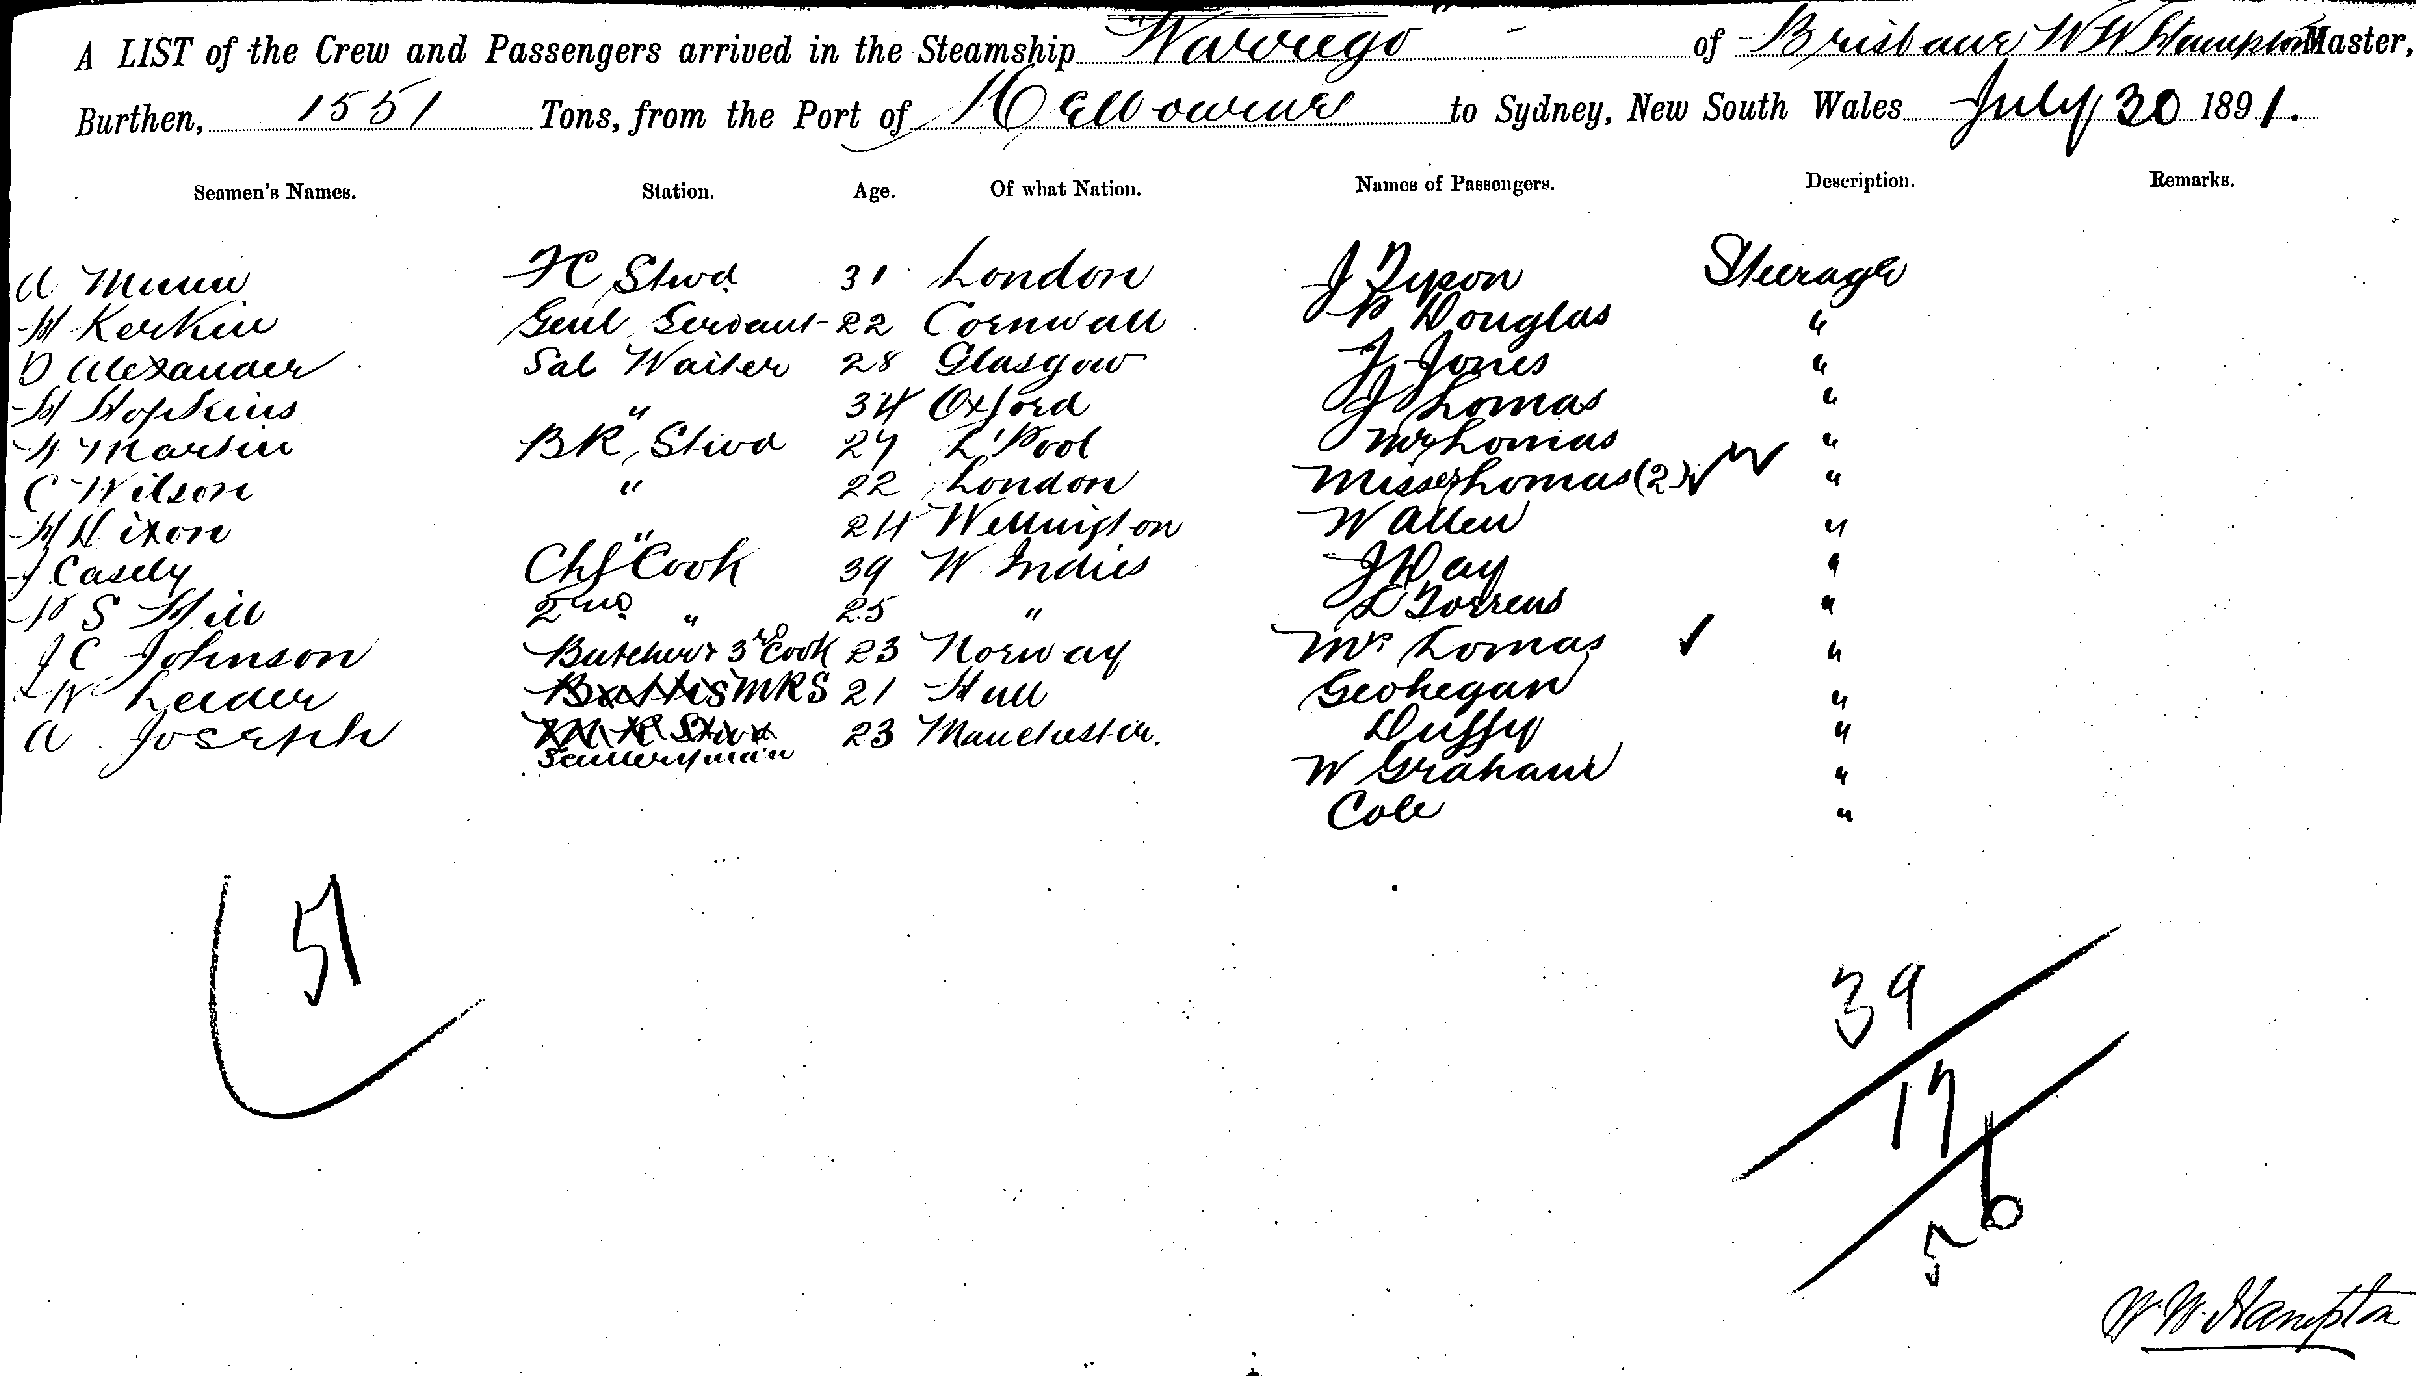 A LIST of the Crew and Passengers arrived in the Steamship Warrego of Brisbane W W Hampton Master,
Burthen, 1551 Tons, from the Port of Melbourne to Sydney, New South Wales July 30 1891.
Seamen's Names. Station. Age. Of what Nation. Names of Passengers. Description. Remarks.
A Munn FC Stwd 31 London J Tyson Steerage
H Kerkin Genl Servant 22 Cornwall P Douglas "
D Alexander Sal Waiter 28 Glasgow J Jones "
H Hopkins " 34 Oxford J Thomas "
Martin BR Stwd 27 L'Pool Mrs Thomas "
C Wilson " 22 London Misses Thomas (2) "
H Dixon " 24 Wellington W Allen "
J Casely Chf Cook 39 W Indies J Day "
W S Hill 2nd " 25 " L Torrens "
J C Johnson Butcher & 3rd Cook 23 Norway Mrs Lomas "
W Leeder MRS 21 Hull Geohegan "
A Joseph 23 Manchester. Duffy "
Sculleryman W Graham "
Cole "
51
39
17
56
W. W. Hampton